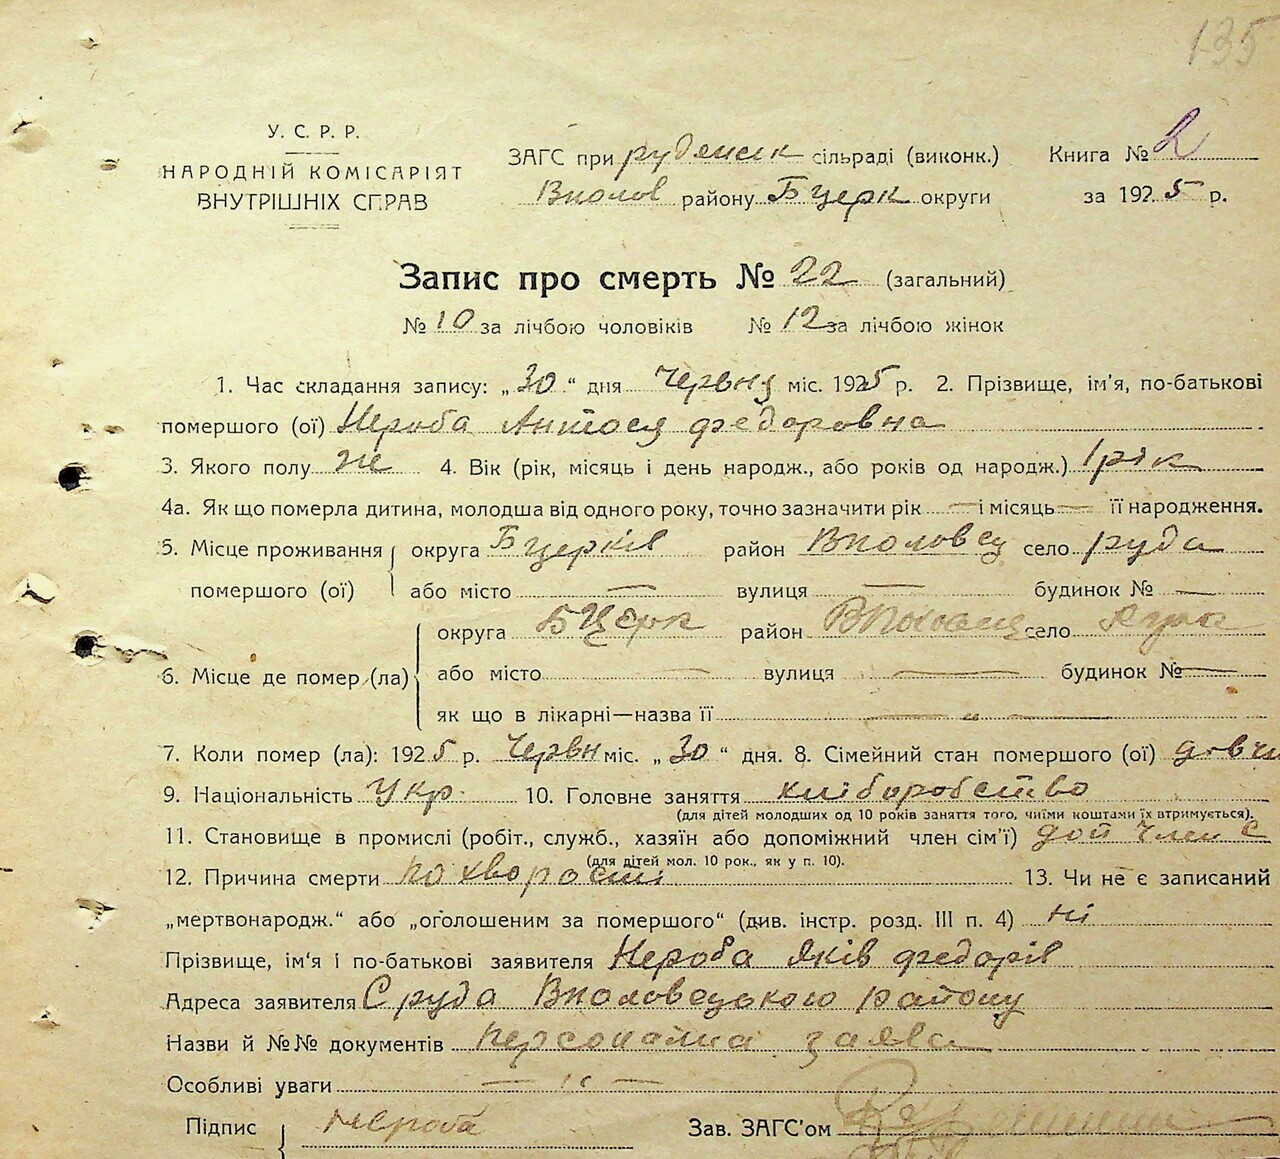 135
У. С. Р. Р.
НАРОДНІЙ КОМІСАРІЯТ
ВНУТРІШНІХ СПРАВ
ЗАГС при рудянськ сільраді (виконк.)
Вполов району Бцерк округи
Книга № 2
за 1925 р.
Запис про смерть № 22 (загальний)
№ 10 за лічбою чоловіків № 12 за лічбою жінок
1. Час складання запису: „30“ дня Червня міс. 1925 р. 2. Прізвище, ім'я, по-батькові
помершого (ої) Нероба Антося федоровна
3. Якого полу же 4. Вік (рік, місяць і день народж., або років од народж.) 1 рік
4а. Як що померла дитина, молодша від одного року, точно зазначити рік — і місяць — її народження.
5. Місце проживання округа Бцерків район Вполовец село руда
помершого (ої) або місто — вулиця — будинок № —
округа БЦерк район село
6. Місце де помер (ла) або місто — вулиця — будинок № —
як що в лікарні—назва її — „ —
7. Коли помер (ла): 1925 р. Червн міс. „30“ дня. 8. Сімейний стан помершого (ої) дівчи
9. Національність Укр. 10. Головне заняття хліборобство
(для дітей молодших од 10 років заняття того, чиїми коштами їх втримується).
11. Становище в промислі (робіт., служб., хазяїн або допоміжний член сім'ї) доп член с
(для дітей мол. 10 рок., як у п. 10).
12. Причина смерти по хворости 13. Чи не є записаний
„мертвонародж.“ або „оголошеним за помершого“ (див. інстр. розд. III п. 4) ні
Прізвище, ім'я і по-батькові заявителя Нероба Яків федорів
Адреса заявителя С руда Вполовецького району
Назви й №№ документів персональна заява
Особливі уваги — „ —
Підпис Нероба Зав. ЗАГС'ом